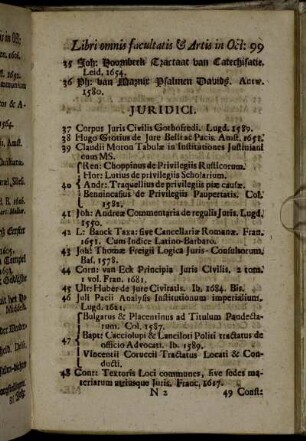 Libri omnis facultatis & Artis in Oct: 99
35 Joh: Hoornbeek Tractaat van Catechisatie.
Leid. 1654.
36 Ph: van Marnix Psalmen Davids. Antw.
1580.
JURIDICI.
37 Corpus Juris Civilis Gothofredi. Lugd. 1589.
38 Hugo Grotius de Jure Belli ac Pacis. Amst. 1651.
39 Claudii Moron Tabulæ in Institutiones Justiniani
cum MS.
Ren: Choppinus de Privilegiis Rusticorum.
Hor: Lutius de privilegiis Scholarium.
40 Andr: Traquellus de privilegiis piæ causæ.
Bendincasius de Privilegiis Paupertatis. Col.
1582.
41 Joh: Andreæ Commentaria de regulis Juris. Lugd.
1550.
42 L: Banck Taxa: sive Cancellariæ Romanæ. Fran.
1651. Cum Indice Latino-Barbaro.
43 Joh: Thomæ Freigii Logica Juris-Consultorum.
Bas. 1578.
44 Corn: van Eck Principia Juris Civilis. 2 tom.
1 vol. Fran. 1681.
45 Ulr: Huber de Jure Civitatis. Ib. 1684. Bis.
46 Julii Pacii Analysis Institutionum imperialium.
Lugd. 1641.
Bulgarus & Placentinus ad Titulum Pandectarum.
Col. 1587.
47 Bapt: Cacciolupi & Lanciloti Polici tractatus de
officio Advocati. Ib. 1589.
Vincentii Coruccii Tractatus Locati & Conducti.
48 Conr: Textoris Loci communes, sive sedes materiarum
utriusque Juris. Franc. 1617.
N 2 49 Const: